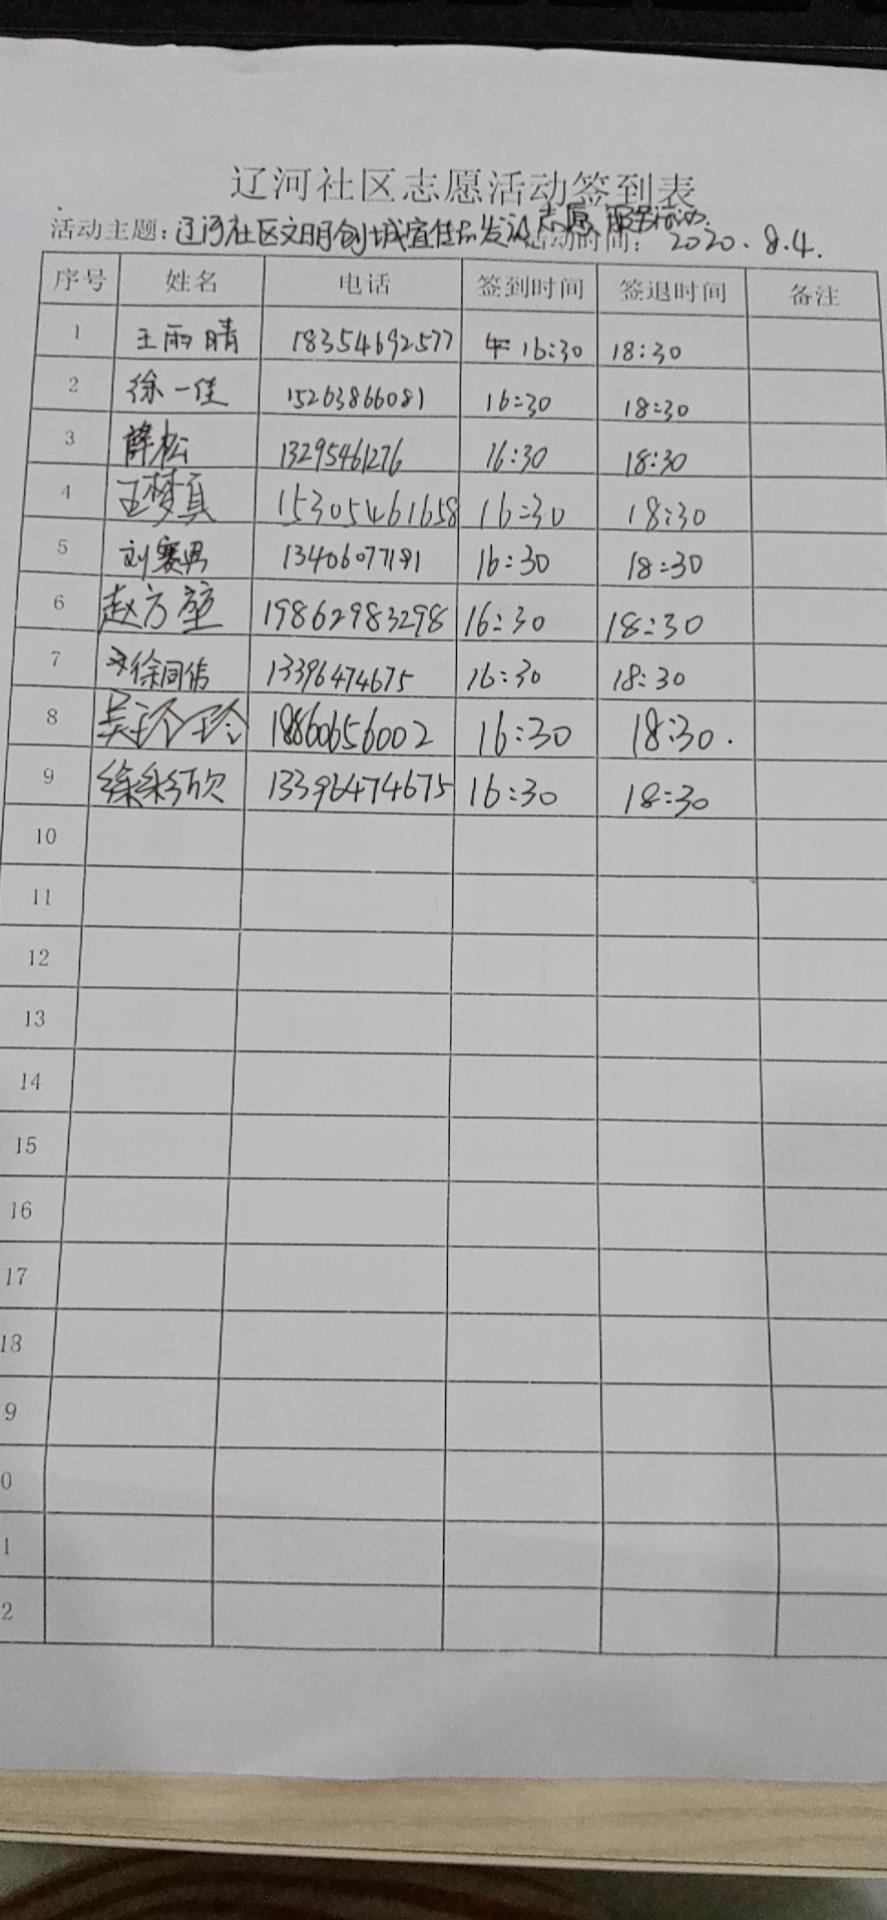 辽河社区志愿活动签到表
活动主题：辽河社区文明创城宣传品发放志愿服务活动 活动时间：2020.8.4.
序号 姓名 电话 签到时间 签退时间 备注
1 王雨晴 18354692577 16:30 18:30
2 徐一佳 15263866081 16:30 18:30
3 薛松 13295461276 16:30 18:30
4 王梦真 15305461658 16:30 18:30
5 刘赛男 13406077191 16:30 18:30
6 赵方堃 19862983298 16:30 18:30
7 徐同 13396474675 16:30 18:30
8 吴玲玲 19860656002 16:30 18:30.
9 徐彩欣 13396474675 16:30 18:30
10
11
12
13
14
15
16
17
18
9
0
1
2